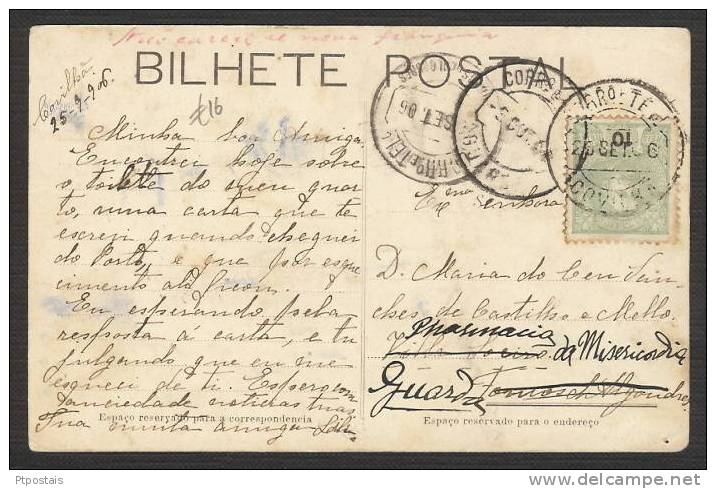 Não carece de nova franquia
BILHETE POSTAL
Covilhã
25-9-906.
£16
Minha boa Amiga
Encontrei hoje sobre
o toilete do meu quar
to, numa carta que te
escrevi quando cheguei
do Porto, e que por esque
cimento ali ficou.
Eu, esperando pela
resposta á carta, e tu
julgando que eu me
esqueci de ti. Espero com
anciedade noticias tuas
Tua muito amiga
Espaço reservado para a correspondencia
CORREIO
SET. 06
10
26 SET. 06
COVILHÃ
Exma Senhora
D. Maria do Ceu San-
ches de Castilho e Mello.
Pharmacia
da Misericordia
Guarda
Espaço reservado para o endereço
Ptpostais
delcampe.net